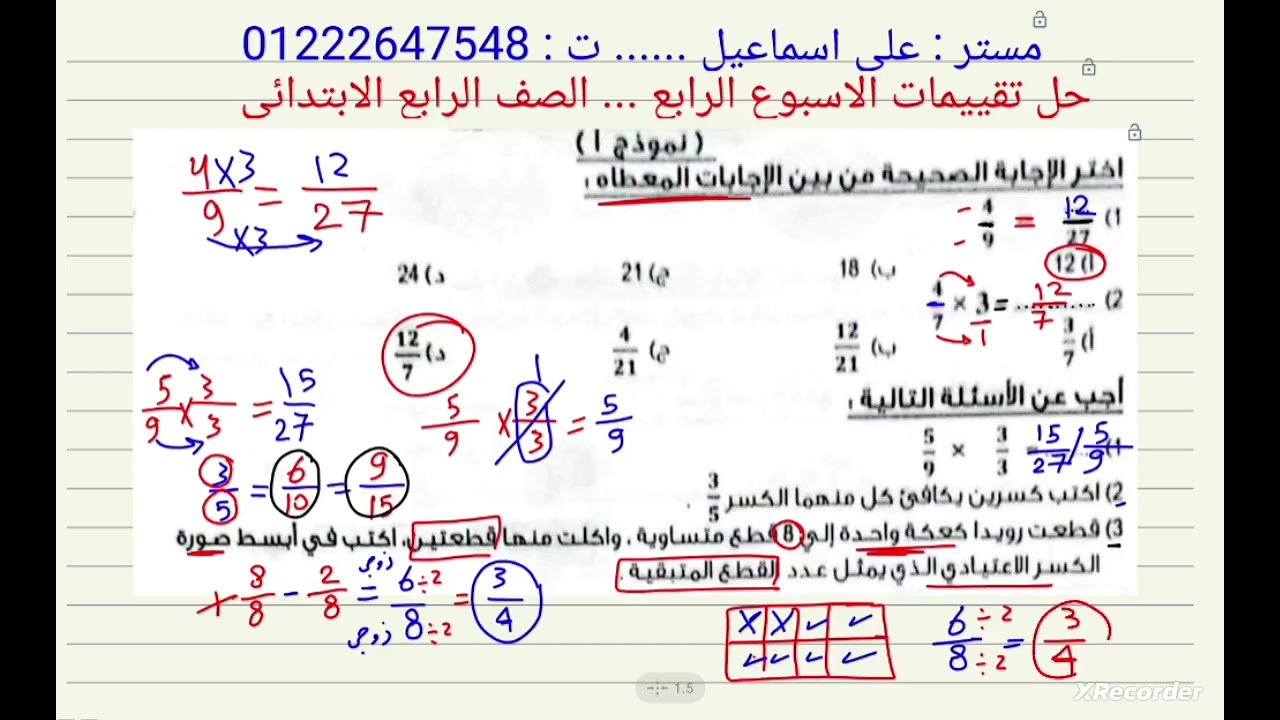 مستر : على اسماعيل ...... ت : 01222647548
حل تقييمات الاسبوع الرابع ... الصف الرابع الابتدائى
(نموذج ١)
اختر الإجابة الصحيحة من بين الإجابات المعطاه :
1) 12/27 = 4/9
أ) 12 ب) 18 ج) 21 د) 24
4 × 3 / 9 = 12 / 27
×3
2) 4/7 × 3/1 = ...12/7...
أ) 3/7 ب) 12/21 ج) 4/21 د) 12/7
أجب عن الأسئلة التالية :
1) 5/9 × 3/3 = 15/27 / 5/9
5/9 × 3/3 = 15/27
5/9 × 3/3 = 5/9
1
2) اكتب كسرين يكافئ كل منهما الكسر 3/5 .
3/5 = 6/10 = 9/15
3) قطعت رويدا كعكة واحدة إلي 8 قطع متساوية ، واكلت منها قطعتين، اكتب في أبسط صورة
الكسر الاعتيادي الذي يمثل عدد القطع المتبقية .
8/8 - 2/8 = 6÷2 / 8÷2 = 3/4
زوجي
زوجي
6÷2 / 8÷2 = 3/4
1.5
XRecorder